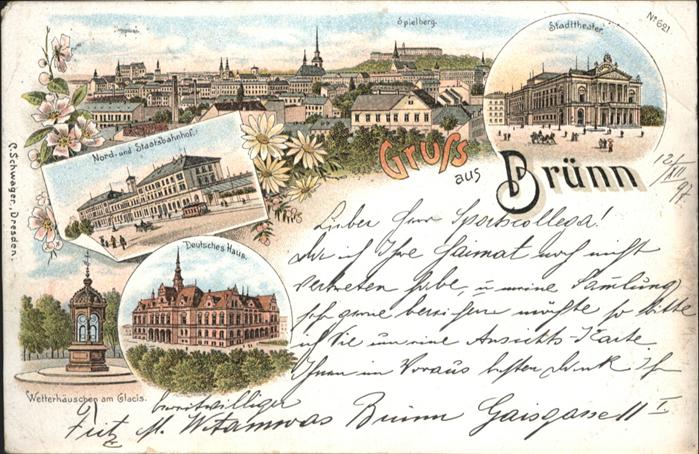 Spielberg.
Stadttheater.
No 621
Nord- und Staatsbahnhof.
Gruß
aus
Brünn
C. Schwager, Dresden.
Deutsches Haus.
Wetterhäuschen am Glacis.
12/XII 97
Lieber Herr Sportcollega!
Da ich Ihre Heimat noch nicht
vertreten habe, u meine Samlung
sehr gerne bereichern möchte so bitte
ich Sie um eine Ansichts-Karte.
Ihnen im Voraus besten Dank Ihr
bereitwilliger
Fritz M. Brünn Gaisgasse 11 I.